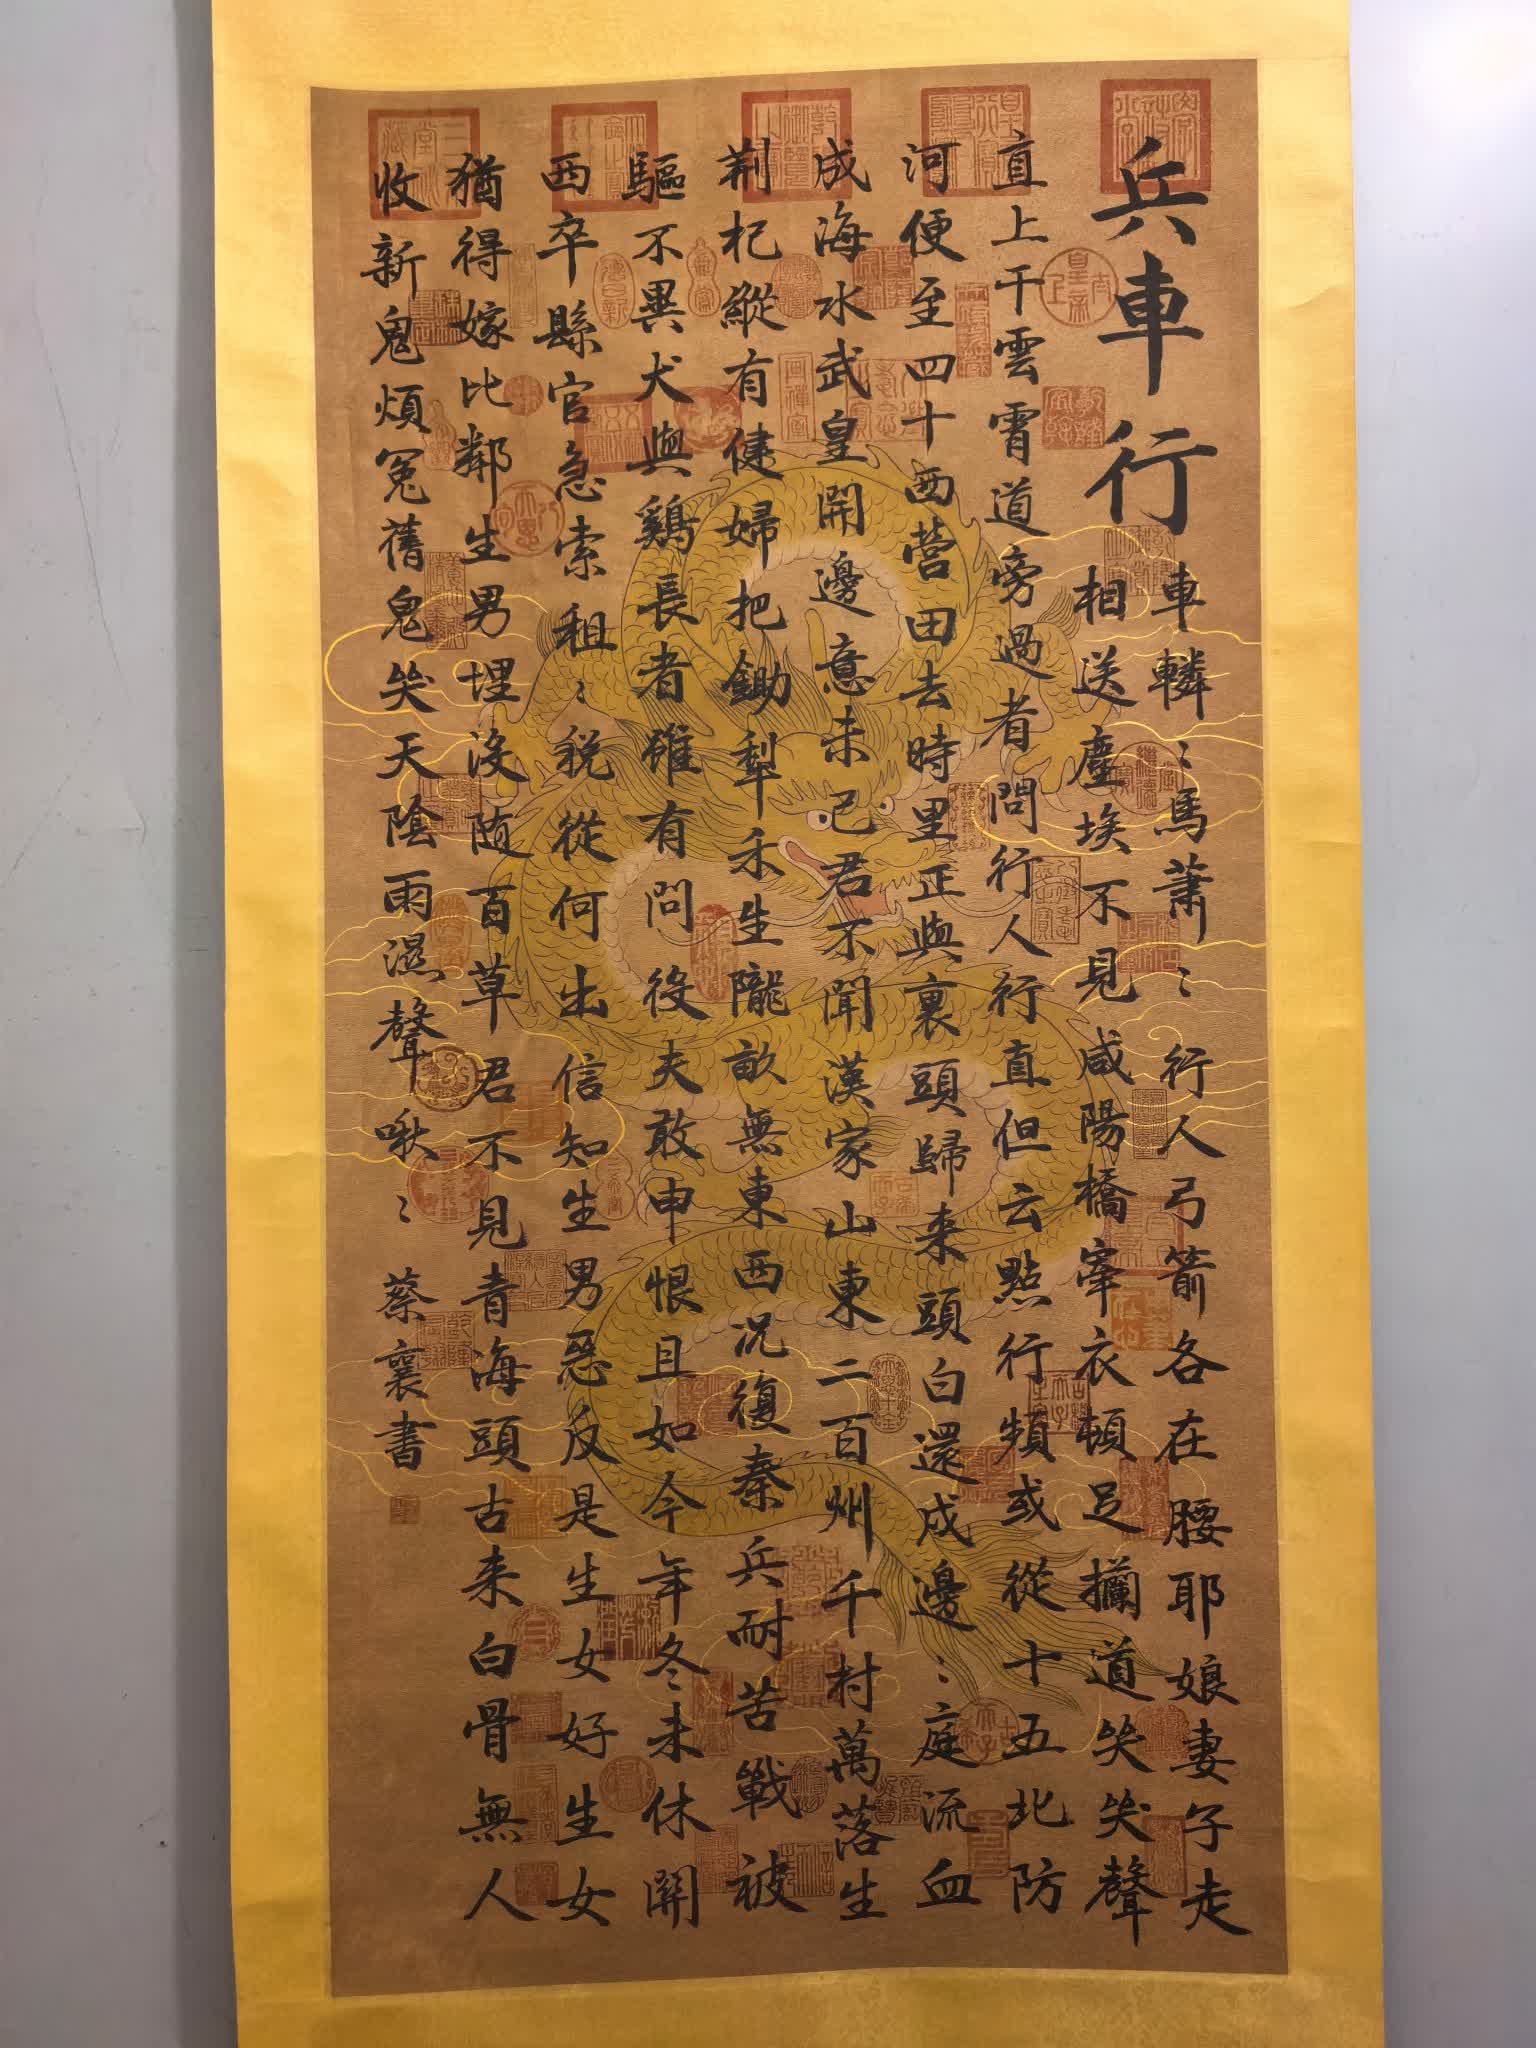 兵車行
車轔〻馬蕭〻行人弓箭各在腰耶娘妻子走
相送塵埃不見咸陽橋牽衣頓足攔道哭哭聲
直上干雲霄道旁過者問行人行直但云點行頻或從十五北防
河便至四十西營田去時里正與裹頭歸来頭白還戍邊〻庭流血
成海水武皇開邊意未已君不聞漢家山東二百州千村萬落生
荆杞縱有健婦把鋤犁禾生隴畝無東西況復秦兵耐苦戰被
驅不異犬與鷄長者雖有問役夫敢申恨且如今年冬未休關
西卒縣官急索租〻税從何出信知生男惡反是生女好生女
猶得嫁比鄰生男埋没随百草君不見青海頭古来白骨無人
收新鬼煩冤舊鬼哭天陰雨濕聲啾〻蔡襄書